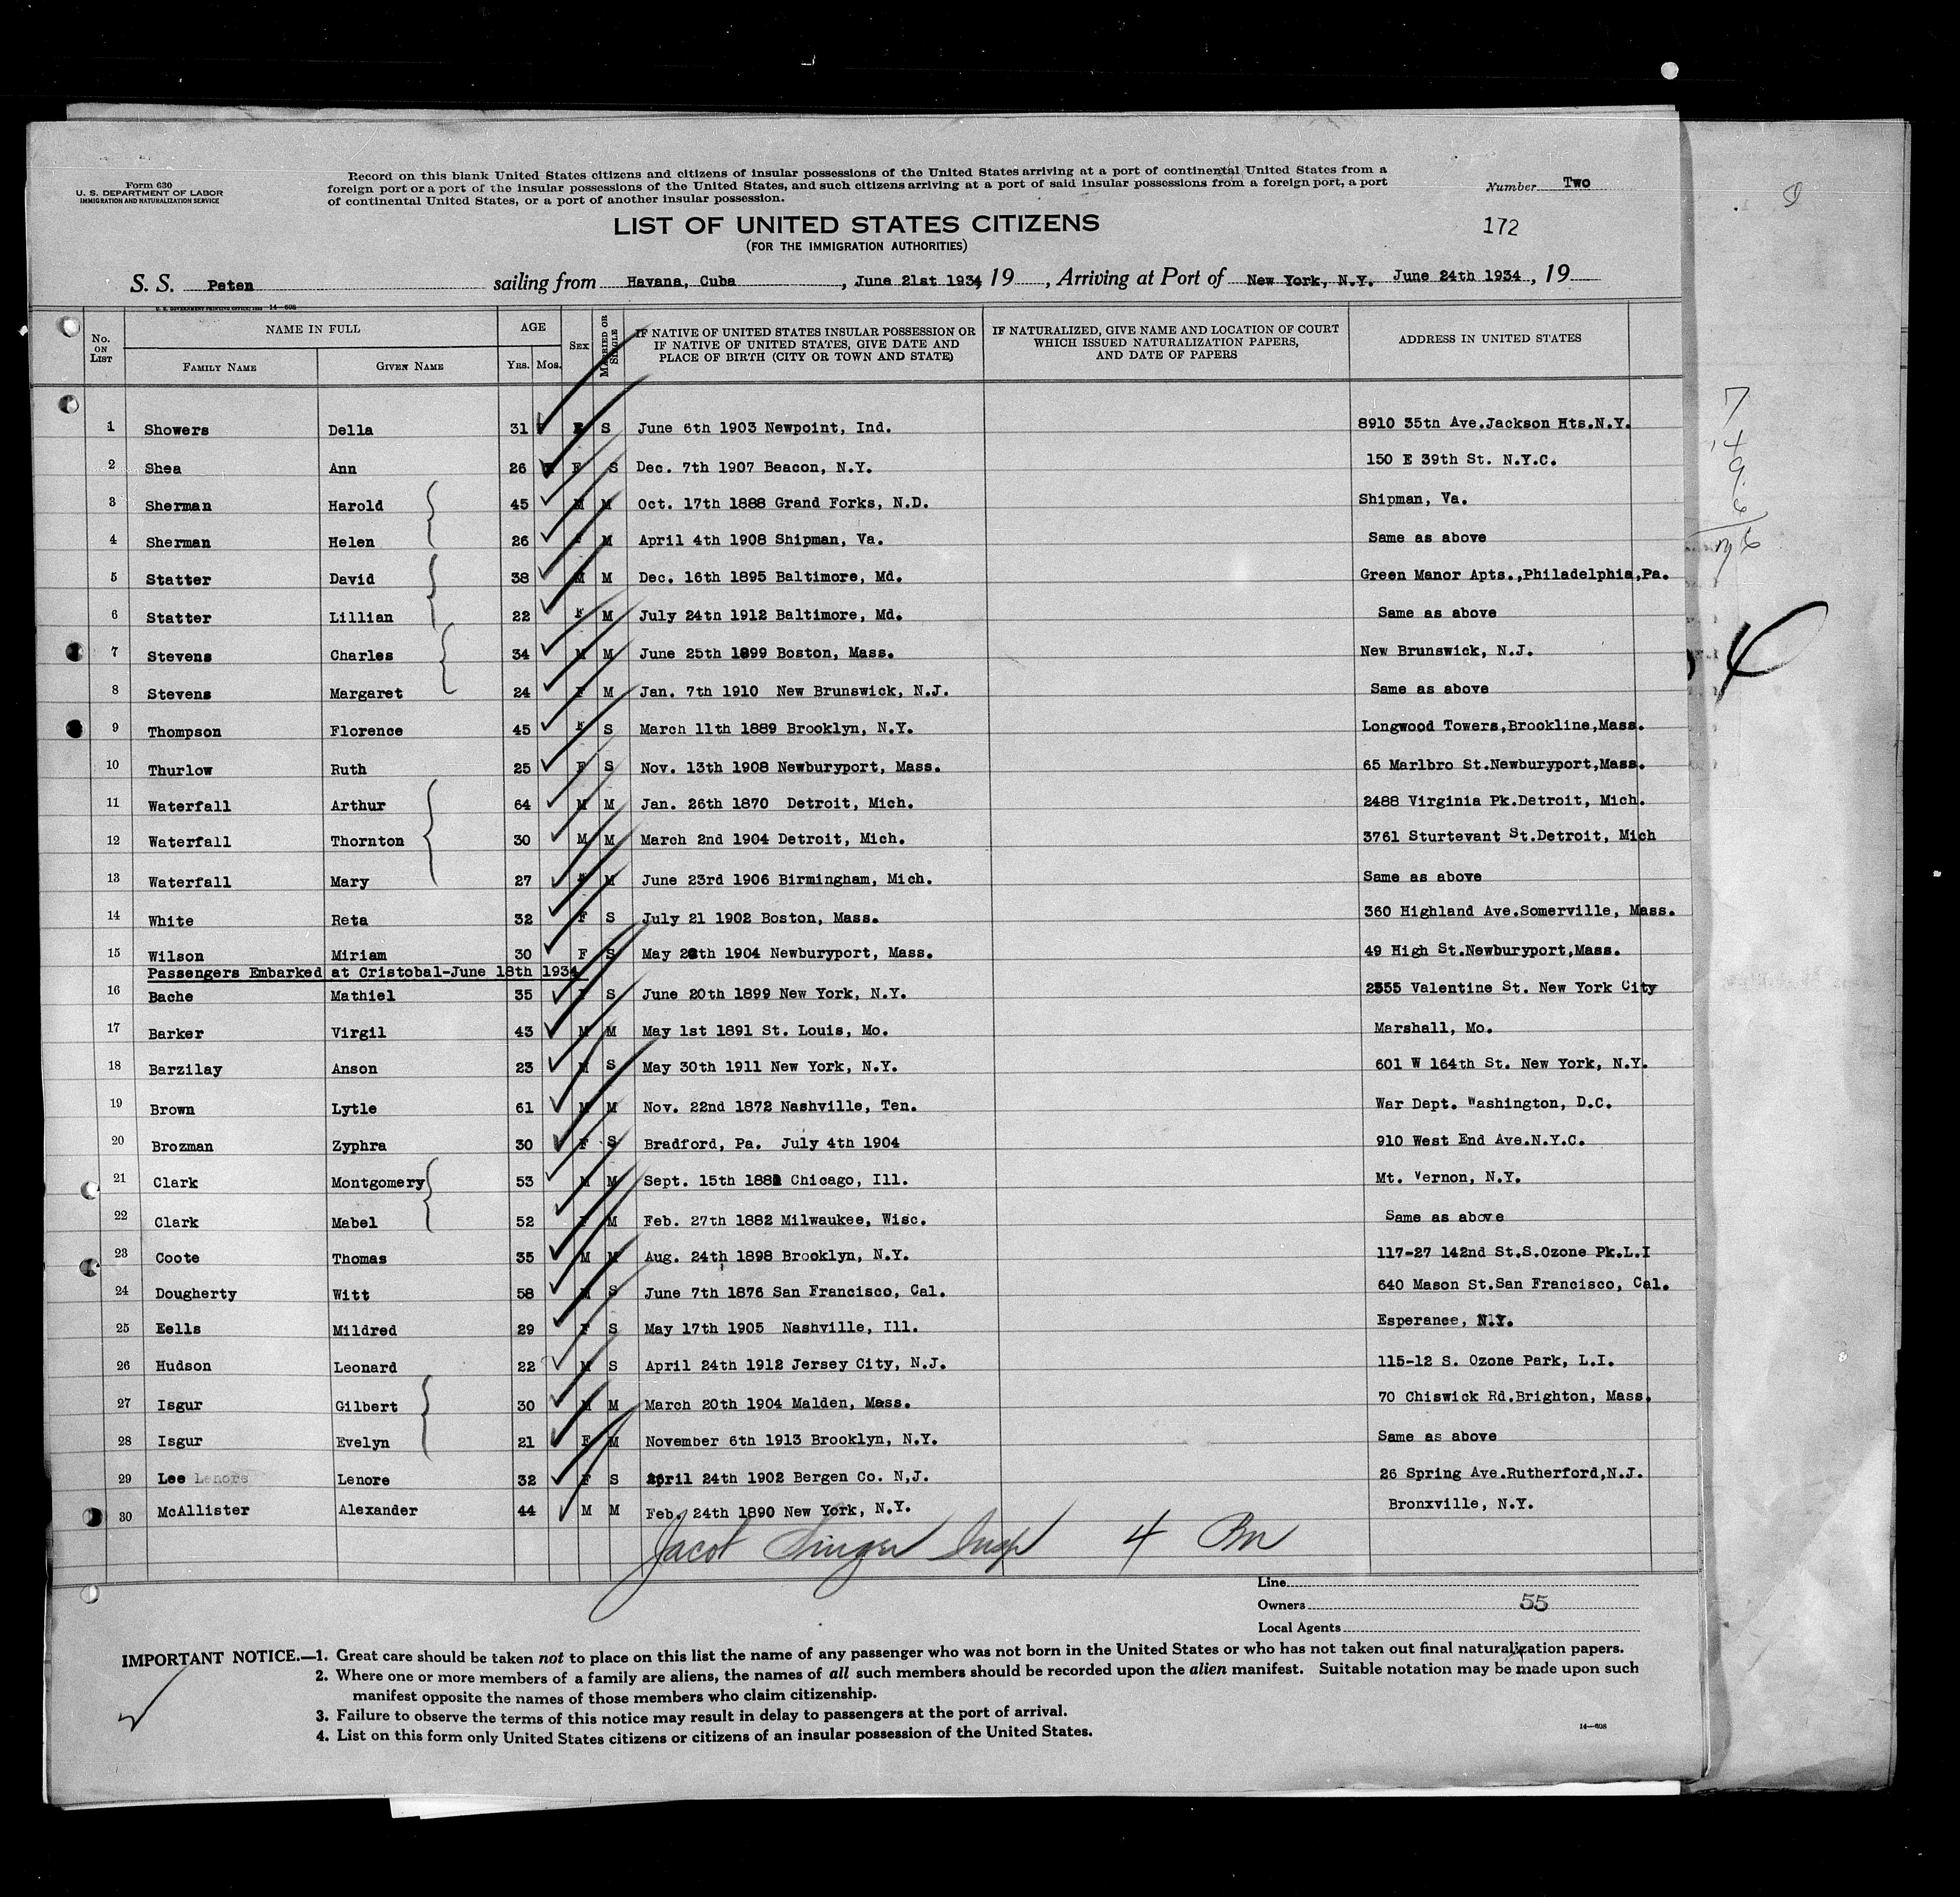 Form 630
U. S. DEPARTMENT OF LABOR
IMMIGRATION AND NATURALIZATION SERVICE
Record on this blank United States citizens and citizens of insular possessions of the United States arriving at a port of continental United States from a
foreign port or a port of the insular possessions of the United States, and such citizens arriving at a port of said insular possessions from a foreign port, a port
of continental United States, or a port of another insular possession.
Number Two
LIST OF UNITED STATES CITIZENS
172
(FOR THE IMMIGRATION AUTHORITIES)
S. S. Peten sailing from Havana, Cuba, June 21st 1934 19, Arriving at Port of New York, N.Y. June 24th 1934, 19
U. S. GOVERNMENT PRINTING OFFICE: 1933 14—608
No. ON LIST NAME IN FULL AGE SEX MARRIED OR SINGLE IF NATIVE OF UNITED STATES INSULAR POSSESSION OR IF NATIVE OF UNITED STATES, GIVE DATE AND PLACE OF BIRTH (CITY OR TOWN AND STATE) IF NATURALIZED, GIVE NAME AND LOCATION OF COURT WHICH ISSUED NATURALIZATION PAPERS, AND DATE OF PAPERS ADDRESS IN UNITED STATES
FAMILY NAME GIVEN NAME YRS. MOS.
1 Showers Della 31 F S June 6th 1903 Newpoint, Ind. 8910 35th Ave.Jackson Hts.N.Y.
2 Shea Ann 26 F S Dec. 7th 1907 Beacon, N.Y. 150 E 39th St. N.Y.C.
3 Sherman Harold 45 M M Oct. 17th 1888 Grand Forks, N.D. Shipman, Va.
4 Sherman Helen 26 F M April 4th 1908 Shipman, Va. Same as above
5 Statter David 38 M M Dec. 16th 1895 Baltimore, Md. Green Manor Apts.,Philadelphia,Pa.
6 Statter Lillian 22 F M July 24th 1912 Baltimore, Md. Same as above
7 Stevens Charles 34 M M June 25th 1899 Boston, Mass. New Brunswick, N.J.
8 Stevens Margaret 24 F M Jan. 7th 1910 New Brunswick, N.J. Same as above
9 Thompson Florence 45 F S March 11th 1889 Brooklyn, N.Y. Longwood Towers,Brookline,Mass.
10 Thurlow Ruth 25 F S Nov. 13th 1908 Newburyport, Mass. 65 Marlbro St.Newburyport,Mass.
11 Waterfall Arthur 64 M M Jan. 26th 1870 Detroit, Mich. 2488 Virginia Pk.Detroit, Mich.
12 Waterfall Thornton 30 M M March 2nd 1904 Detroit, Mich. 3761 Sturtevant St.Detroit, Mich
13 Waterfall Mary 27 F M June 23rd 1906 Birmingham, Mich. Same as above
14 White Reta 32 F S July 21 1902 Boston, Mass. 360 Highland Ave.Somerville, Mass.
15 Wilson Miriam 30 F S May 1904 Newburyport, Mass. 49 High St.Newburyport,Mass.
Passengers Embarked at Cristobal-June 18th 1934
16 Bache Mathiel 35 F S June 20th 1899 New York, N.Y. Valentine St. New York City
17 Barker Virgil 43 M M May 1st 1891 St. Louis, Mo. Marshall, Mo.
18 Barzilay Anson 23 M S May 30th 1911 New York, N.Y. 601 W 164th St. New York, N.Y.
19 Brown Lytle 61 M M Nov. 22nd 1872 Nashville, Ten. War Dept. Washington, D.C.
20 Brozman Zyphra 30 F S Bradford, Pa. July 4th 1904 910 West End Ave.N.Y.C.
21 Clark Montgomery 53 M M Sept. 15th Chicago, Ill. Mt. Vernon, N.Y.
22 Clark Mabel 52 F M Feb. 27th 1882 Milwaukee, Wisc. Same as above
23 Coote Thomas 35 M M Aug. 24th 1898 Brooklyn, N.Y. 117-27 142nd St.S.Ozone Pk.L.I
24 Dougherty Witt 58 M S June 7th 1876 San Francisco, Cal. 640 Mason St.San Francisco, Cal.
25 Eells Mildred 29 F S May 17th 1905 Nashville, Ill. Esperance, N.Y.
26 Hudson Leonard 22 M S April 24th 1912 Jersey City, N.J. 115-12 S. Ozone Park, L.I.
27 Isgur Gilbert 30 M M March 20th 1904 Malden, Mass. 70 Chiswick Rd.Brighton, Mass.
28 Isgur Evelyn 21 F M November 6th 1913 Brooklyn, N.Y. Same as above
29 Lee Lenore Lenore 32 F S April 24th 1902 Bergen Co. N,J. 26 Spring Ave.Rutherford,N.J.
30 McAllister Alexander 44 M M Feb. 24th 1890 New York, N.Y. Bronxville, N.Y.
Jacob Singer Insp 4
Line
Owners 55
Local Agents
IMPORTANT NOTICE.—1. Great care should be taken not to place on this list the name of any passenger who was not born in the United States or who has not taken out final naturalization papers.
2. Where one or more members of a family are aliens, the names of all such members should be recorded upon the alien manifest. Suitable notation may be made upon such
manifest opposite the names of those members who claim citizenship.
3. Failure to observe the terms of this notice may result in delay to passengers at the port of arrival.
4. List on this form only United States citizens or citizens of an insular possession of the United States.
14—608